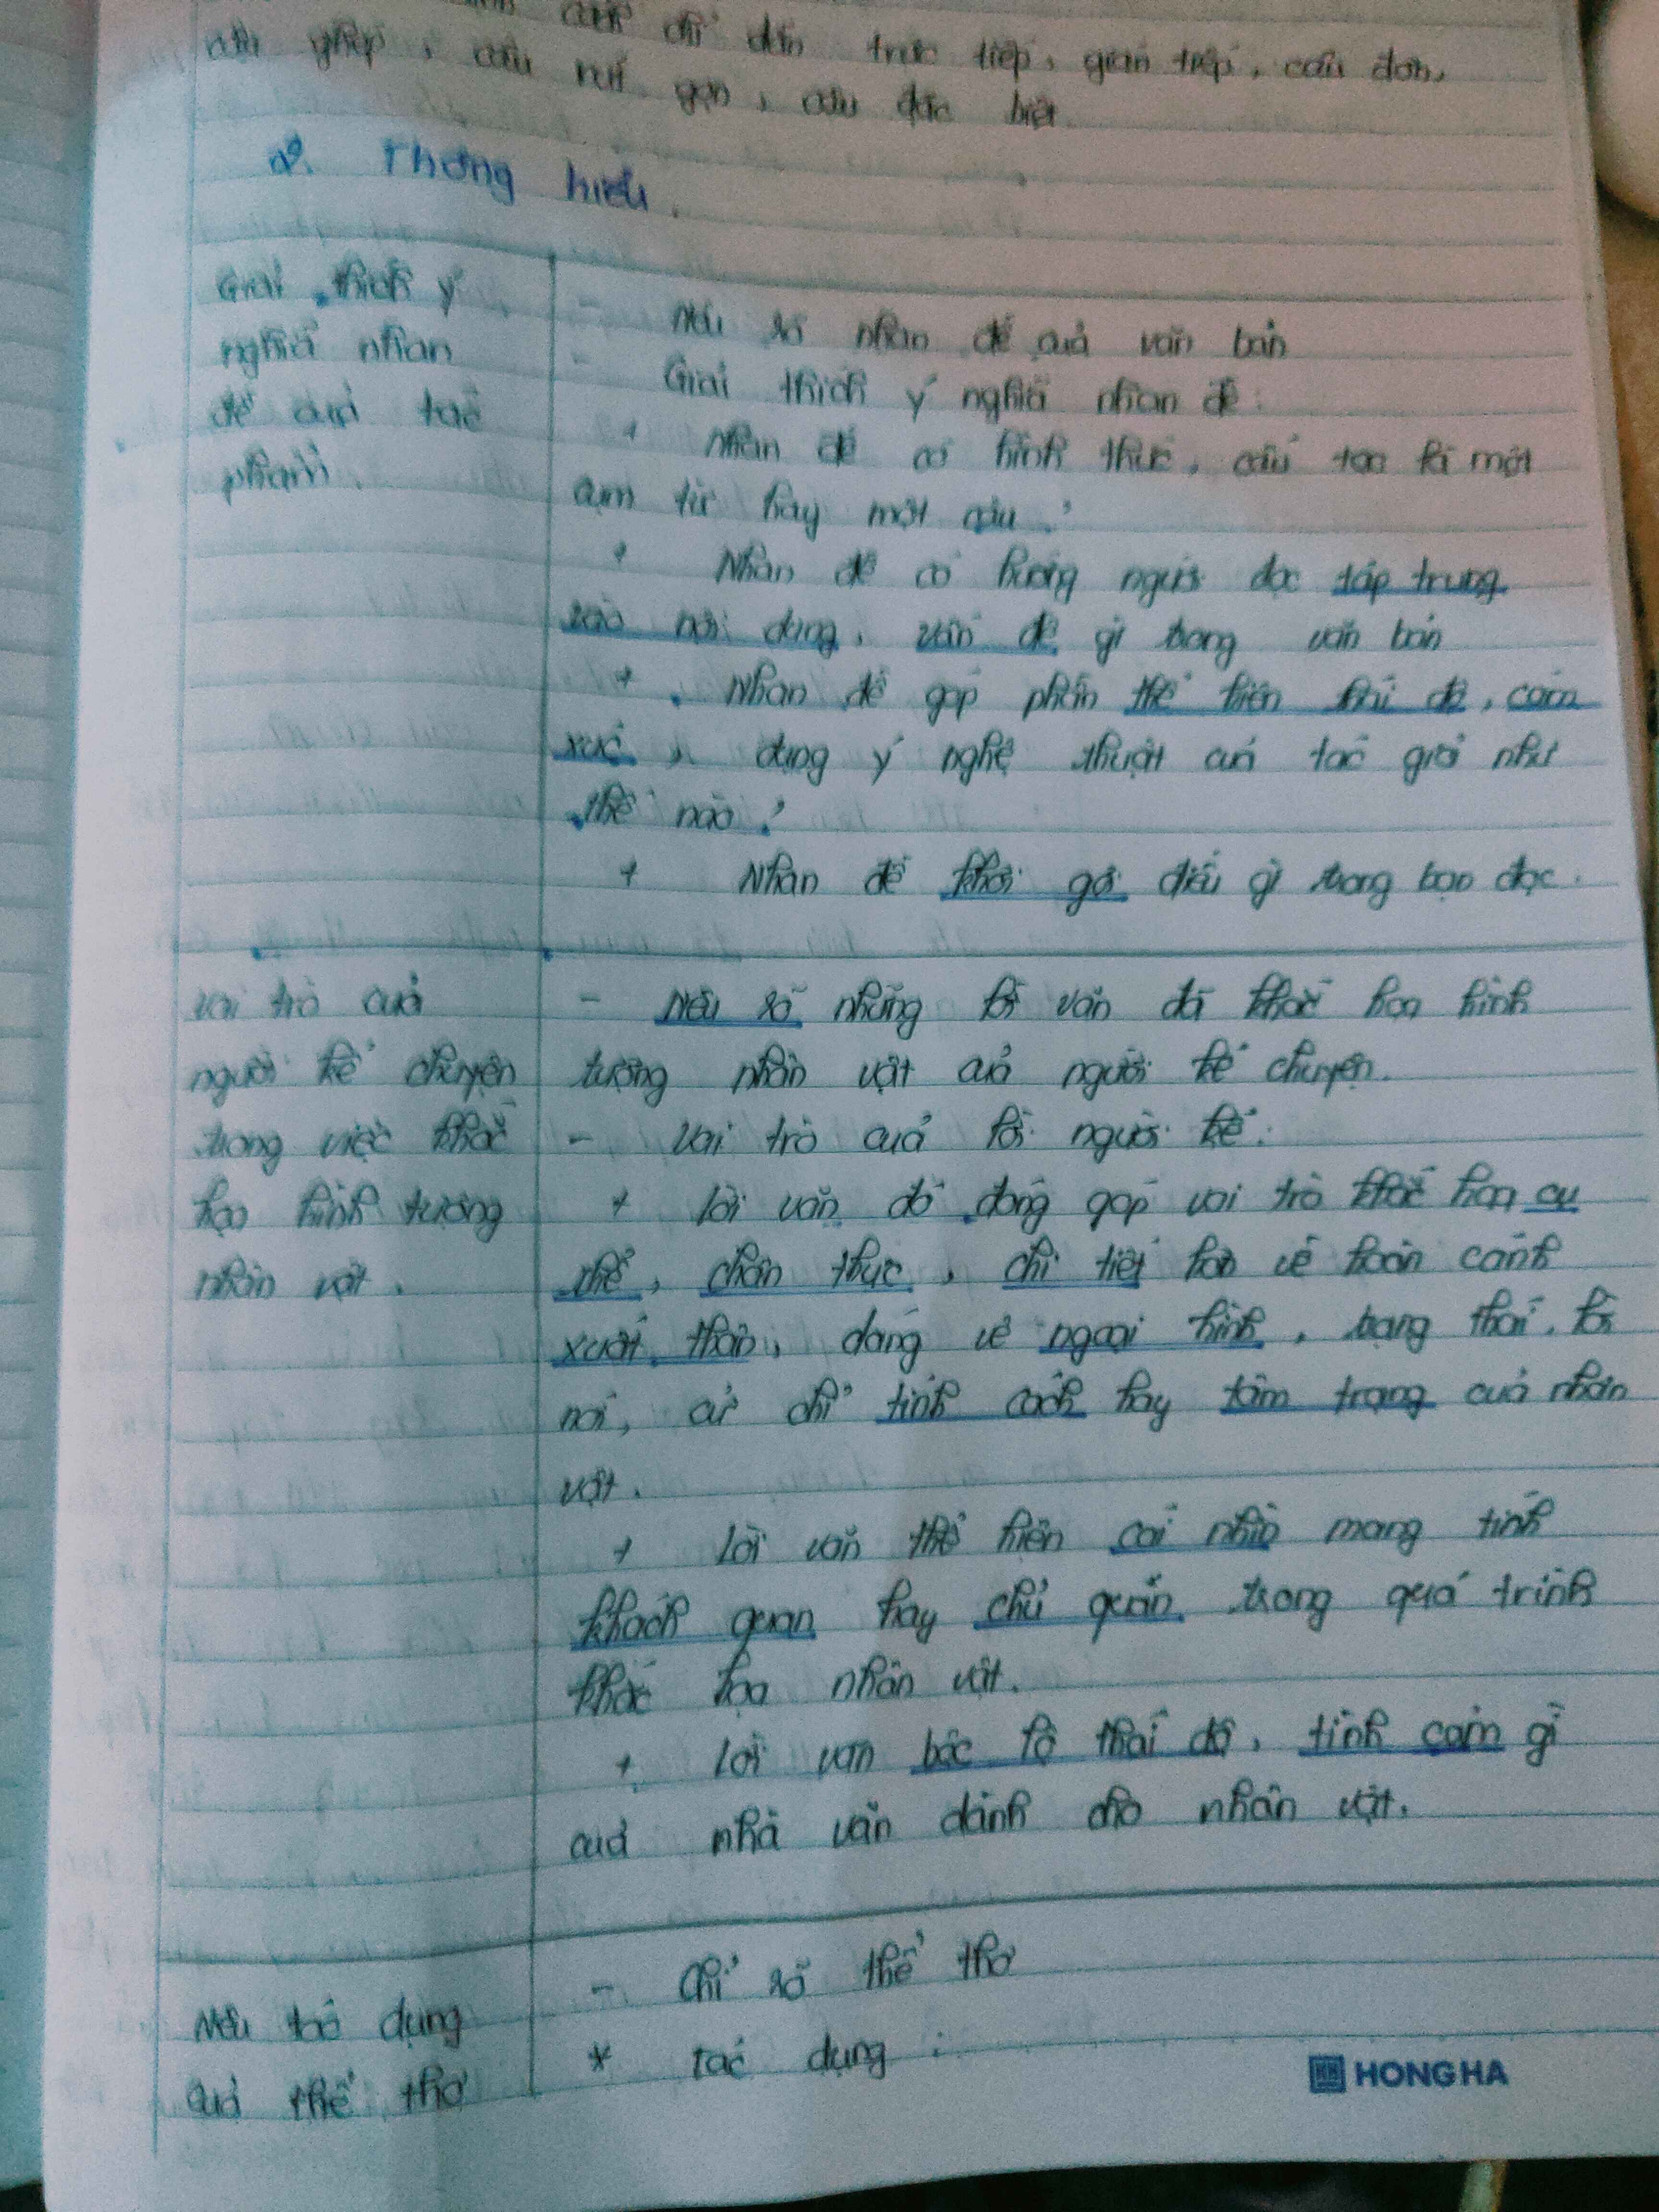 chỉ dẫn trực tiếp, gián tiếp, câu đơn,
câu ghép, câu rút gọn, câu đặc biệt
2. Thông hiểu.
Giải thích ý
nghĩa nhan
đề của tác
phẩm.
- Nêu rõ nhan đề của văn bản
- Giải thích ý nghĩa nhan đề:
+ Nhan đề có hình thức, cấu tạo là một
cụm từ hay một câu?
+ Nhan đề có hướng người đọc tập trung
vào nội dung, vấn đề gì trong văn bản
+ Nhan đề góp phần thể hiện chủ đề, cảm
xúc, dụng ý nghệ thuật của tác giả như
thế nào?
+ Nhan đề khơi gợi điều gì trong bạn đọc.
Vai trò của
người kể chuyện
trong việc khắc
họa hình tượng
nhân vật.
- Nêu rõ những lời văn đã khắc họa hình
tượng nhân vật của người kể chuyện.
- Vai trò của lời người kể:
+ Lời văn đó đóng góp vai trò khắc họa cụ
thể, chân thực, chi tiết hơn về hoàn cảnh
xuất thân, dáng vẻ ngoại hình, trạng thái, lời
nói, cử chỉ tính cách hay tâm trạng của nhân
vật.
+ Lời văn thể hiện cái nhìn mang tính
khách quan hay chủ quan trong quá trình
khắc họa nhân vật.
+ Lời văn bộc lộ thái độ, tình cảm gì
của nhà văn dành cho nhân vật.
Nêu tác dụng
của thể thơ
- Chỉ rõ thể thơ
* Tác dụng:
HONG HA